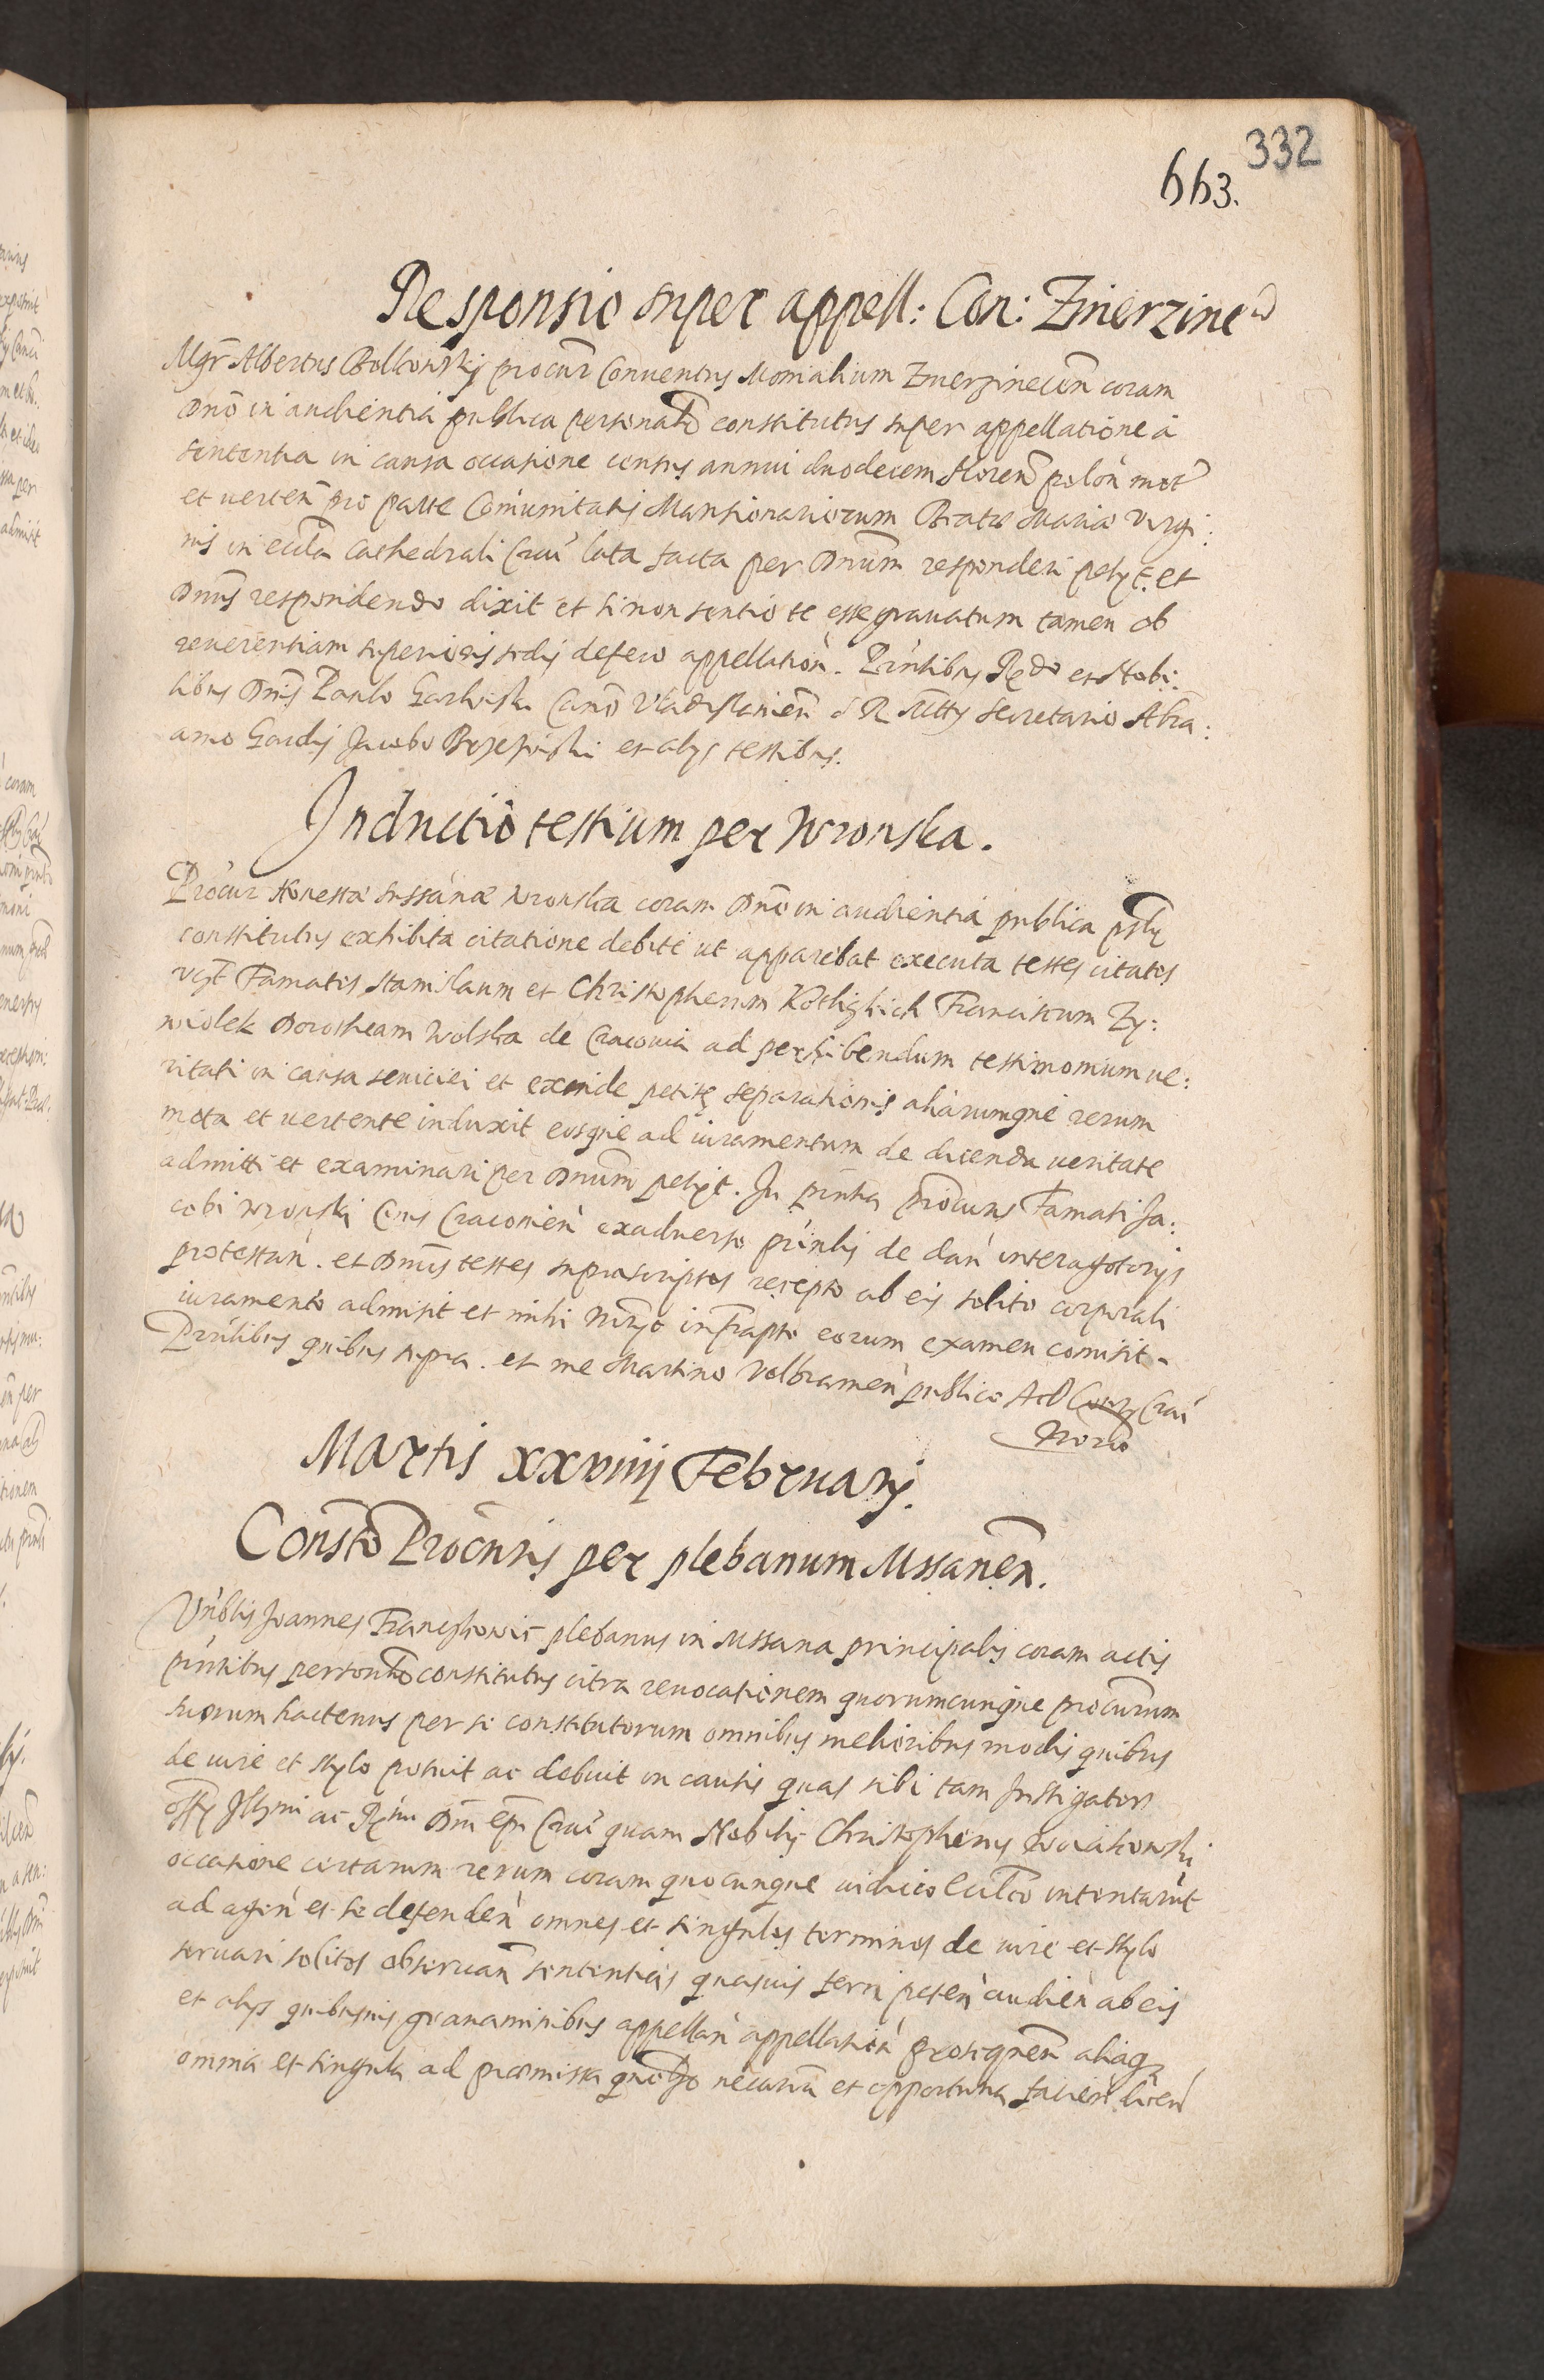 332
663.
Responsio super appell: Con: Zwierzinec
Mgr Albertus Bolkowskij procur Conuentus Monialium Zwerzinecen coram
Dno in audientia publica personalr constitutus super appellatione à
sententia in causa occasione census annui duodecem floren polon mot
et verten pro parte Communitatis Mansionariorum Beatæ Mariæ Virgi:
nis in eccla Cathedrali Crac lata facta per Dnum responderi petyt. et
Dnus respondendo dixit et si non sentio te esse grauatum tamen ob
reuerentiam superioris sedis defero appellation. Pntibus Rdo et Nobi:
libus Dnis Paulo Canō Vladislauien S R Mttis Secretario Abra:
amo Jacobo et alys testibus.
Inductio testium per Wronska.
Procur Honestæ Sussannæ Wronska coram Dno in audientia publica pslr
constitutus exhibita citatione debite ut apparebat executa testes citatos
vczt Famatos Stanislaum et Christopherum Franciscum Zy:
wiolek Dorotheam Wolska de Cracouia ad perhibendum testimonium ue:
ritati in causa seuiciei et exinde petitę separationis aliarumque rerum
mota et uertente induxit eosque ad iuramentum de dicenda ueritate
admitti et examinari per Dnum petyt. In pntia procuris Famati Ja:
cobi Wronski Ciuis Cracouien exaduerso principlis de dan interagotorys
protestan. et Dnus testes suprascriptos recepto ab eis solito corporali
iuramento admisit et mihi Nrio infrapto eorum examen comisit.
Pntibus quibus supra. et me Martino Volbramen publico Act Crac
Notrio
Martis xxviiij Februarij.
Constō Procuris per plebanum Mssanen.
Vnblis Joannes plebanus in Mssana principalis coram actis
pntibus personlr constitutus citra reuocationem quorumcunque procurum
suorum hactenus per se constitutorum omnibus melioribus modis quibus
de iure et stylo potuit ac debuit in causis quas sibi tam Instigator
offy Illmi ac Rmi Dni epi Crac quam Nobilis Christopherus
occasione certarum rerum coram quocunque iudicio ecclco intentarūt
ad agen et se defenden omnes et singulos terminos de iure et stylo
seruari solitos obseruan sententias quasuis ferri peten audien ab eis
et alys quibusuis grauaminibus appellan appellation prosequen aliaqz
omnia et singula ad præmissa quomodo necessaria et opportuna facien licen